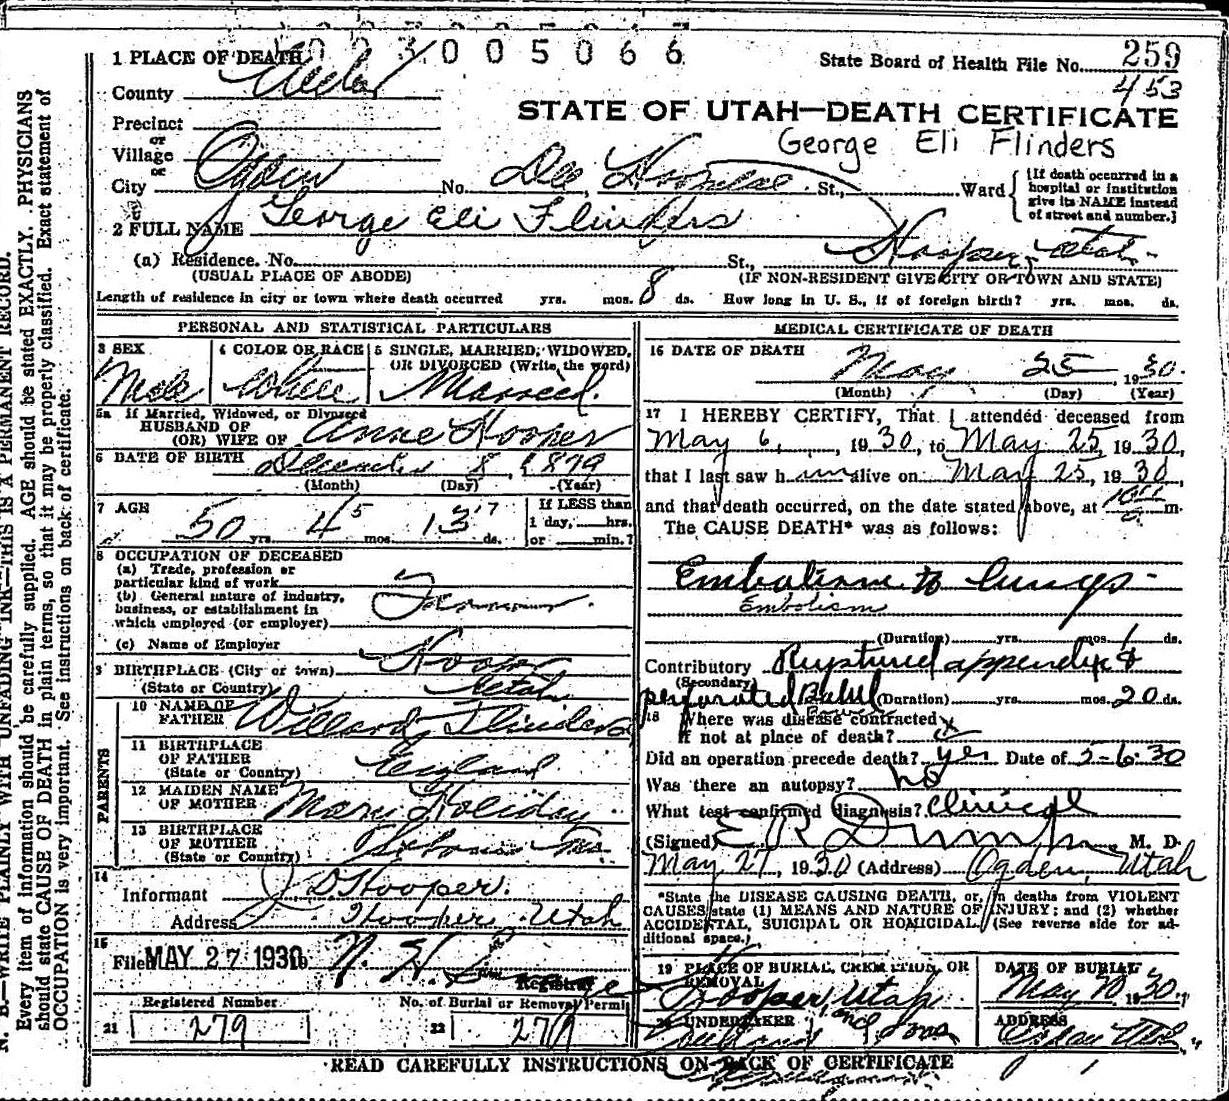 023005066
1 PLACE OF DEATH
State Board of Health File No. 259
453
County Weber
STATE OF UTAH—DEATH CERTIFICATE
Precinct
or
George Eli Flinders
Village
or
City Ogden No. Dee Hospital St., Ward
[If death occurred in a
hospital or institution
give its NAME instead
of street and number.]
2 FULL NAME George Eli Flinders
(a) Residence. No. St., Hooper, Utah.
(USUAL PLACE OF ABODE) (IF NON-RESIDENT GIVE CITY OR TOWN AND STATE)
Length of residence in city or town where death occurred yrs. mos. 8 ds. How long in U. S., if of foreign birth? yrs. mos. ds.
PERSONAL AND STATISTICAL PARTICULARS
3 SEX 4 COLOR OR RACE 5 SINGLE, MARRIED, WIDOWED,
OR DIVORCED (Write the word)
Male White Married
5a If Married, Widowed, or Divorced
HUSBAND OF
(OR) WIFE OF Anne Hooper
6 DATE OF BIRTH December 8, 1879
(Month) (Day) (Year)
7 AGE 50 yrs. 4 5 mos. 13 17 ds.
If LESS than
1 day, hrs.
or min.?
8 OCCUPATION OF DECEASED
(a) Trade, profession or
particular kind of work
(b) General nature of industry,
business, or establishment in
which employed (or employer)
Farmer
(c) Name of Employer
9 BIRTHPLACE (City or town) Hooper
(State or Country) Utah
PARENTS
10 NAME OF
FATHER Willard Flinders
11 BIRTHPLACE
OF FATHER
(State or Country) England
12 MAIDEN NAME
OF MOTHER Mary Holiday
13 BIRTHPLACE
OF MOTHER
(State or Country)
14
Informant J D Hooper.
Address Hooper Utah
15
Filed MAY 27 1930
Registrar
Registered Number No. of Burial or Removal Permit
21 279 22 279
MEDICAL CERTIFICATE OF DEATH
16 DATE OF DEATH
May 25, 1930.
(Month) (Day) (Year)
17 I HEREBY CERTIFY, That I attended deceased from
May 6, 1930, to May 25, 1930,
that I last saw him alive on May 25, 1930,
and that death occurred, on the date stated above, at m.
The CAUSE DEATH* was as follows:
Embolism to lungs-
Embolism
(Duration) yrs. mos. 1 ds.
Contributory Ruptured appendix &
(Secondary)
perforated (Duration) yrs. mos. 20 ds.
18 Where was disease contracted
if not at place of death?
Did an operation precede death? yes Date of 5-6-30
Was there an autopsy? no
What test confirmed diagnosis? clinical
(Signed) E R Dumke, M. D.
May 27, 1930 (Address) Ogden, Utah
*State the DISEASE CAUSING DEATH, or, in deaths from VIOLENT
CAUSES state (1) MEANS AND NATURE OF INJURY; and (2) whether
ACCIDENTAL, SUICIDAL OR HOMICIDAL. (See reverse side for ad-
ditional space.)
19 PLACE OF BURIAL, CREMATION, OR
REMOVAL
Hooper, Utah
DATE OF BURIAL
1930
20 UNDERTAKER
and Sons
ADDRESS
Ogden Utah
READ CAREFULLY INSTRUCTIONS ON BACK OF CERTIFICATE
N. B.—WRITE PLAINLY WITH UNFADING INK—THIS IS A PERMANENT RECORD.
Every item of information should be carefully supplied. AGE should be stated EXACTLY. PHYSICIANS
should state CAUSE OF DEATH in plain terms, so that it may be properly classified. Exact statement of
OCCUPATION is very important. See instructions on back of certificate.